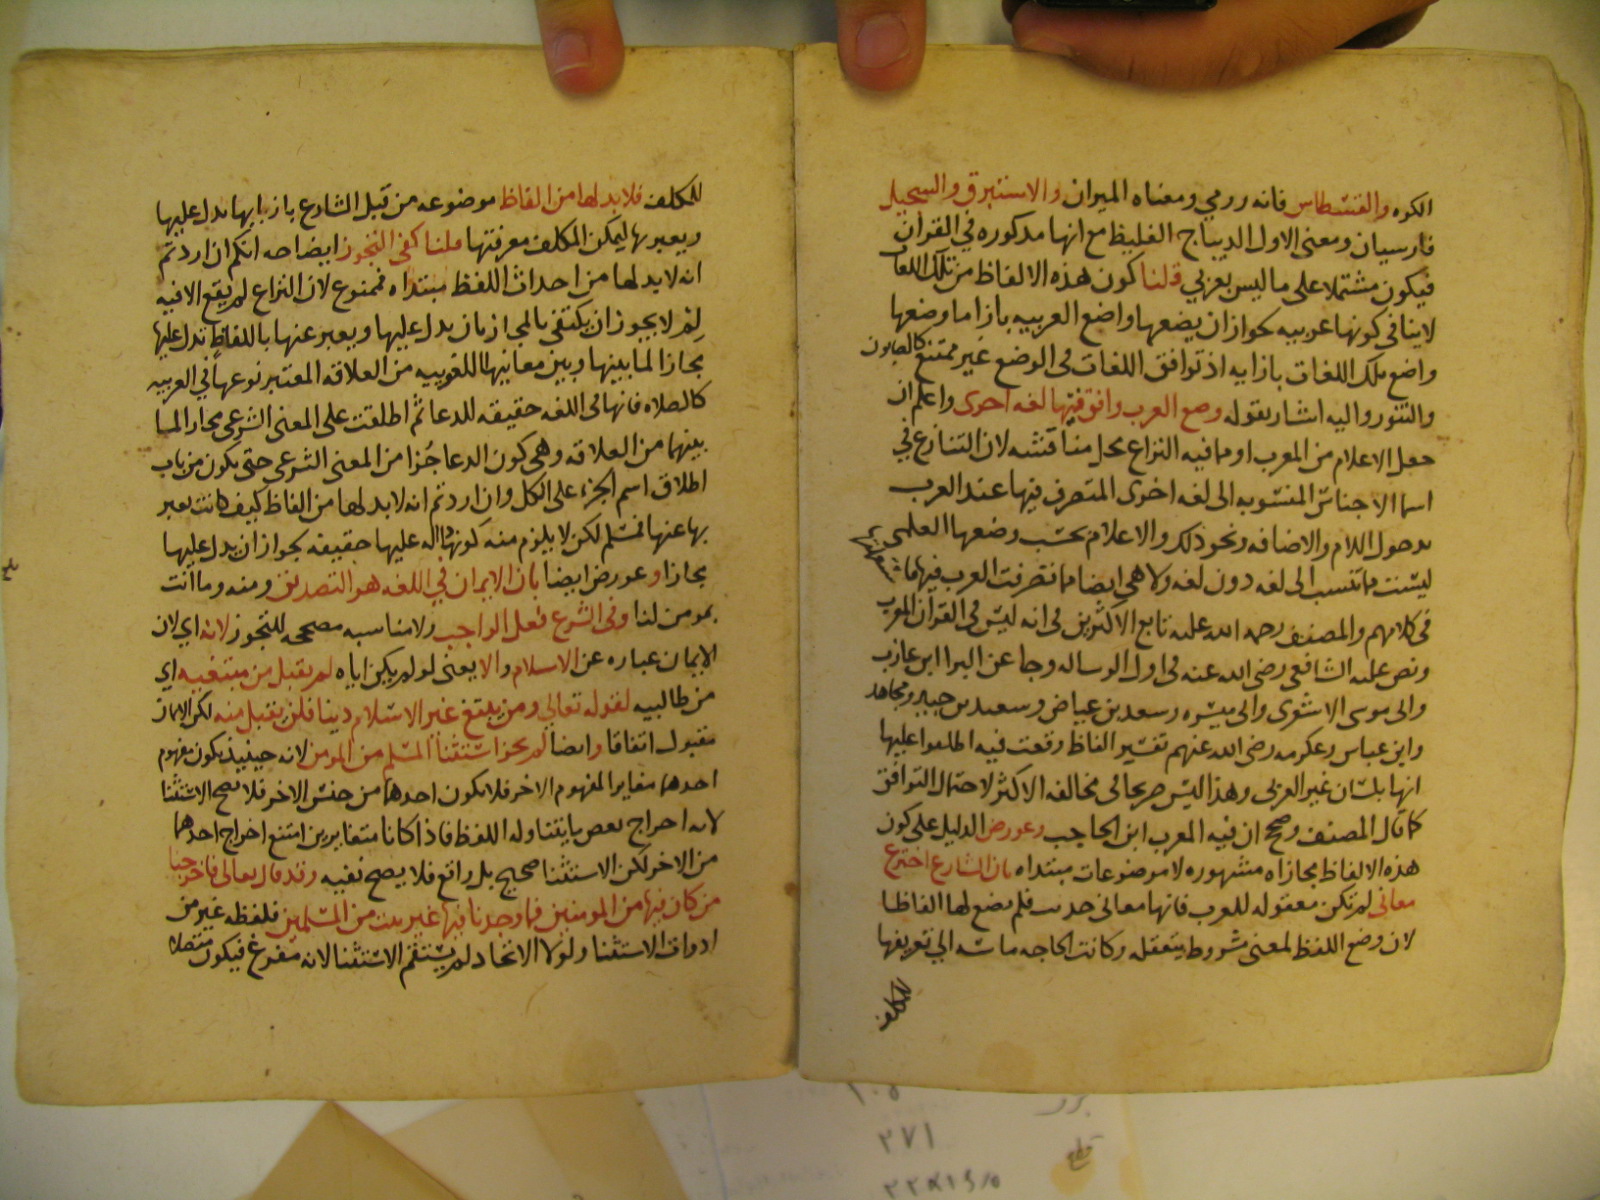 الكوه والقسطاس فانه رومي ومعناه الميزان والاستبرق والسجيل
فارسيان ومعنى الاول الديباج الغليظ مع انها مذكوره في القران
فيكون مشتملا على ما ليس بعربي قلنا كون هذه الالفاظ من تلك اللغات
لا ينافي كونها عربيه لجواز ان يضعها واضع العربيه بازا ما وضعها
واضع تلك اللغات بازايه اذ توافق اللغات في الوضع غير ممتنع كالصابون
والتنور واليه اشار بقوله وضع العرب وافق فيها لغه اخرى واعلم ان
جعل الاعلام من المعرب او مما فيه النزاع محل مناقشه لان التنازع في
اسما الاجناس المنسوبه الى لغه اخرى المتصرف فيها عند العرب
بدخول اللام والاضافه ونحو ذلك والاعلام بحسب وضعها العلمي
ليست مما تنسب الى لغه دون لغه ولا هي ايضا مما تصرفت العرب فيها
في كلامهم والمصنف رحمه الله عليه تابع الاكثرين في انه ليس في القران المعرب
ونص عليه الشافعي رضى الله عنه في اول الرساله وجا عن البرا ابن عازب
والى موسى الاشعرى والى ميسره وسعد بن عياض وسعيد بن جبير ومجاهد
وابن عباس وعكرمه رضى الله عنهم تفسير الفاظ وقعت فيه اطلعوا عليها
انها بلسان غير العربي وهذا ليس صريحا في مخالفه الاكثر لاحتمال التوافق
كما قال المصنف وصحح ان فيه المعرب ابن الحاجب وعورض الدليل على كون
هذه الالفاظ مجازاه مشهوره لا موضوعات مبتداه بان الشارع اخترع
معاني لم تكن معقوله للعرب فانها معانى حدثت فلم تضع لها الفاظا
لان وضع اللفظ لمعنى مشروط بتعقله وكانت الحاجه ماسه الى تعريفها
للمكلف
للمكلف فلا بد لها من الفاظ موضوعه من قبل الشارع بازايها تدل عليها
ويعبر بها ليمكن المكلف معرفتها قلنا كفى التجوز ايضاحه انكم ان اردتم
انه لا بد لها من احداث اللفظ مبتداه فممنوع لان النزاع لم يقع الا فيه
لم لا يجوز ان يكتفى بالمجاز بان يدل عليها ويعبر عنها باللفاظ تدل عليها
مجازا لما بينها وبين معانيها اللغوييه من العلاقه المعتبر نوعها في العربيه
كالصلاه فانها في اللغه حقيقه للدعا ثم اطلقت على المعنى الشرعي مجازا لما
بينهما من العلاقه وهى كون الدعا جزا من المعنى الشرعي حتى يكون من باب
اطلاق اسم الجزء على الكل وان اردتم انه لا بد لها من الفاظ كيف كانت يعبر
بها عنها فمسلم لكن لا يلزم منه كونها داله عليها حقيقه لجواز ان يدل عليها
مجازا وعورض ايضا بان الايمان في اللغه هو التصديق ومنه وما انت
بمومن لنا وفى الشرع فعل الواجب ولا مناسبه مصححه للتجوز لانه اي لان
الايمان عباره عن الاسلام والا يعنى لو لم يكن اياه لم يقبل من مبتغيه اي
من طالبيه لقوله تعالى ومن يبتغ غير الاسلام دينا فلن يقبل منه لكن الايمان
مقبول اتفاقا وايضا لم يجز استثنا المسلم من المومن لانه حينيذ يكون مفهوم
احدهما مغايرا لمفهوم الاخر فلا يكون احدهما من جنس الاخر فلا يصح الاستثنا
لانه اخراج بعض ما يتناوله اللفظ فاذا كانا متغايرين امتنع اخراج احدهما
من الاخر لكن الاستثنا صحيح بل واقع فلا يصح نفيه وقد قال تعالى فاخرجنا
من كان فيها من المومنين فما وجدنا فيها غير بيت من المسلمين فلفظه غير من
ادوات الاستثنا ولولا الاتحاد لم يستقم الاستثنا لانه مفرغ فيكون متصلا
١٠٥
٢٧١